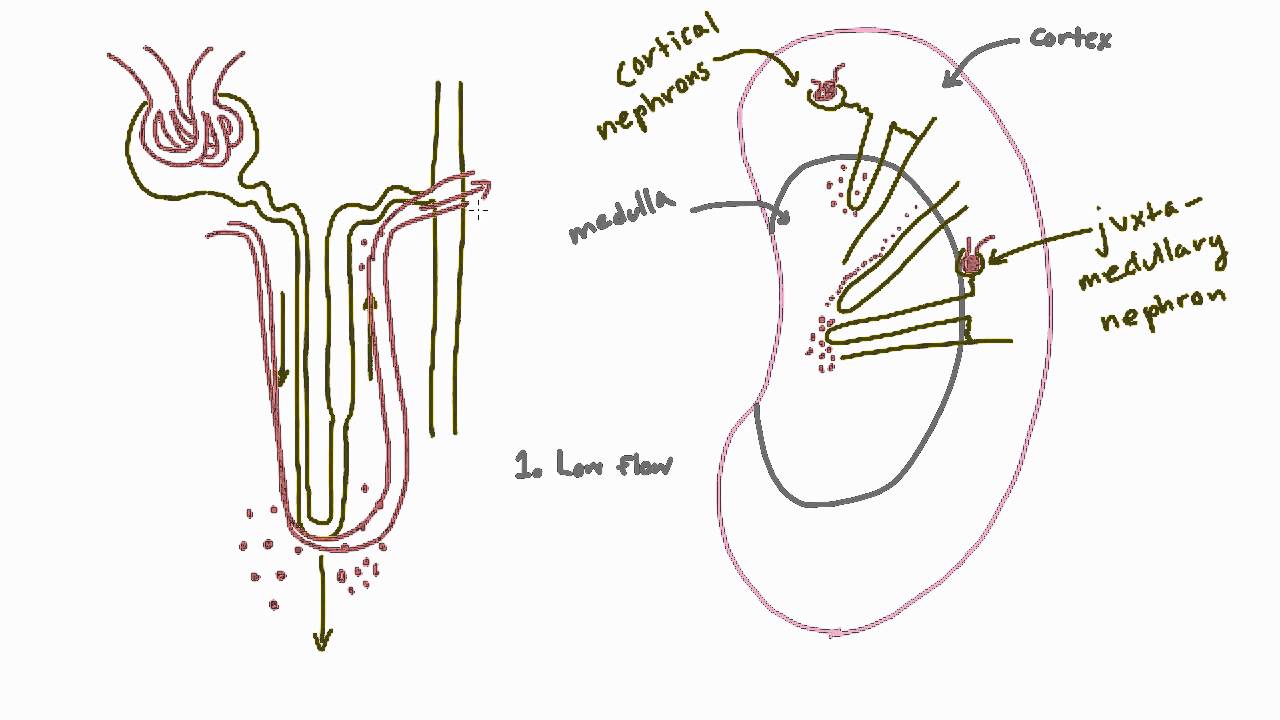 cortical
nephrons
cortex
medulla
juxta-
medullary
nephron
1. Low flow